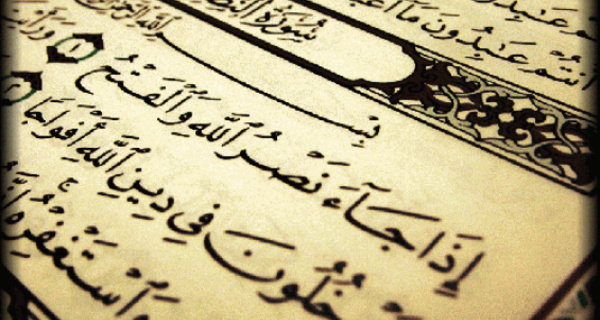 أَنتُمْ عَـٰبِدُونَ مَآ
سُورَةُ ٱلنَّصْرِ
بِسْمِ ٱللَّهِ ٱلرَّحْمَـٰنِ
إِذَا جَآءَ نَصْرُ ٱللَّهِ وَٱلْفَتْحُ ١ وَرَأَيْ
خُلُونَ فِى دِينِ ٱللَّهِ أَفْوَاجًا ٢
وَٱسْتَغْفِرْهُ إِنَّ